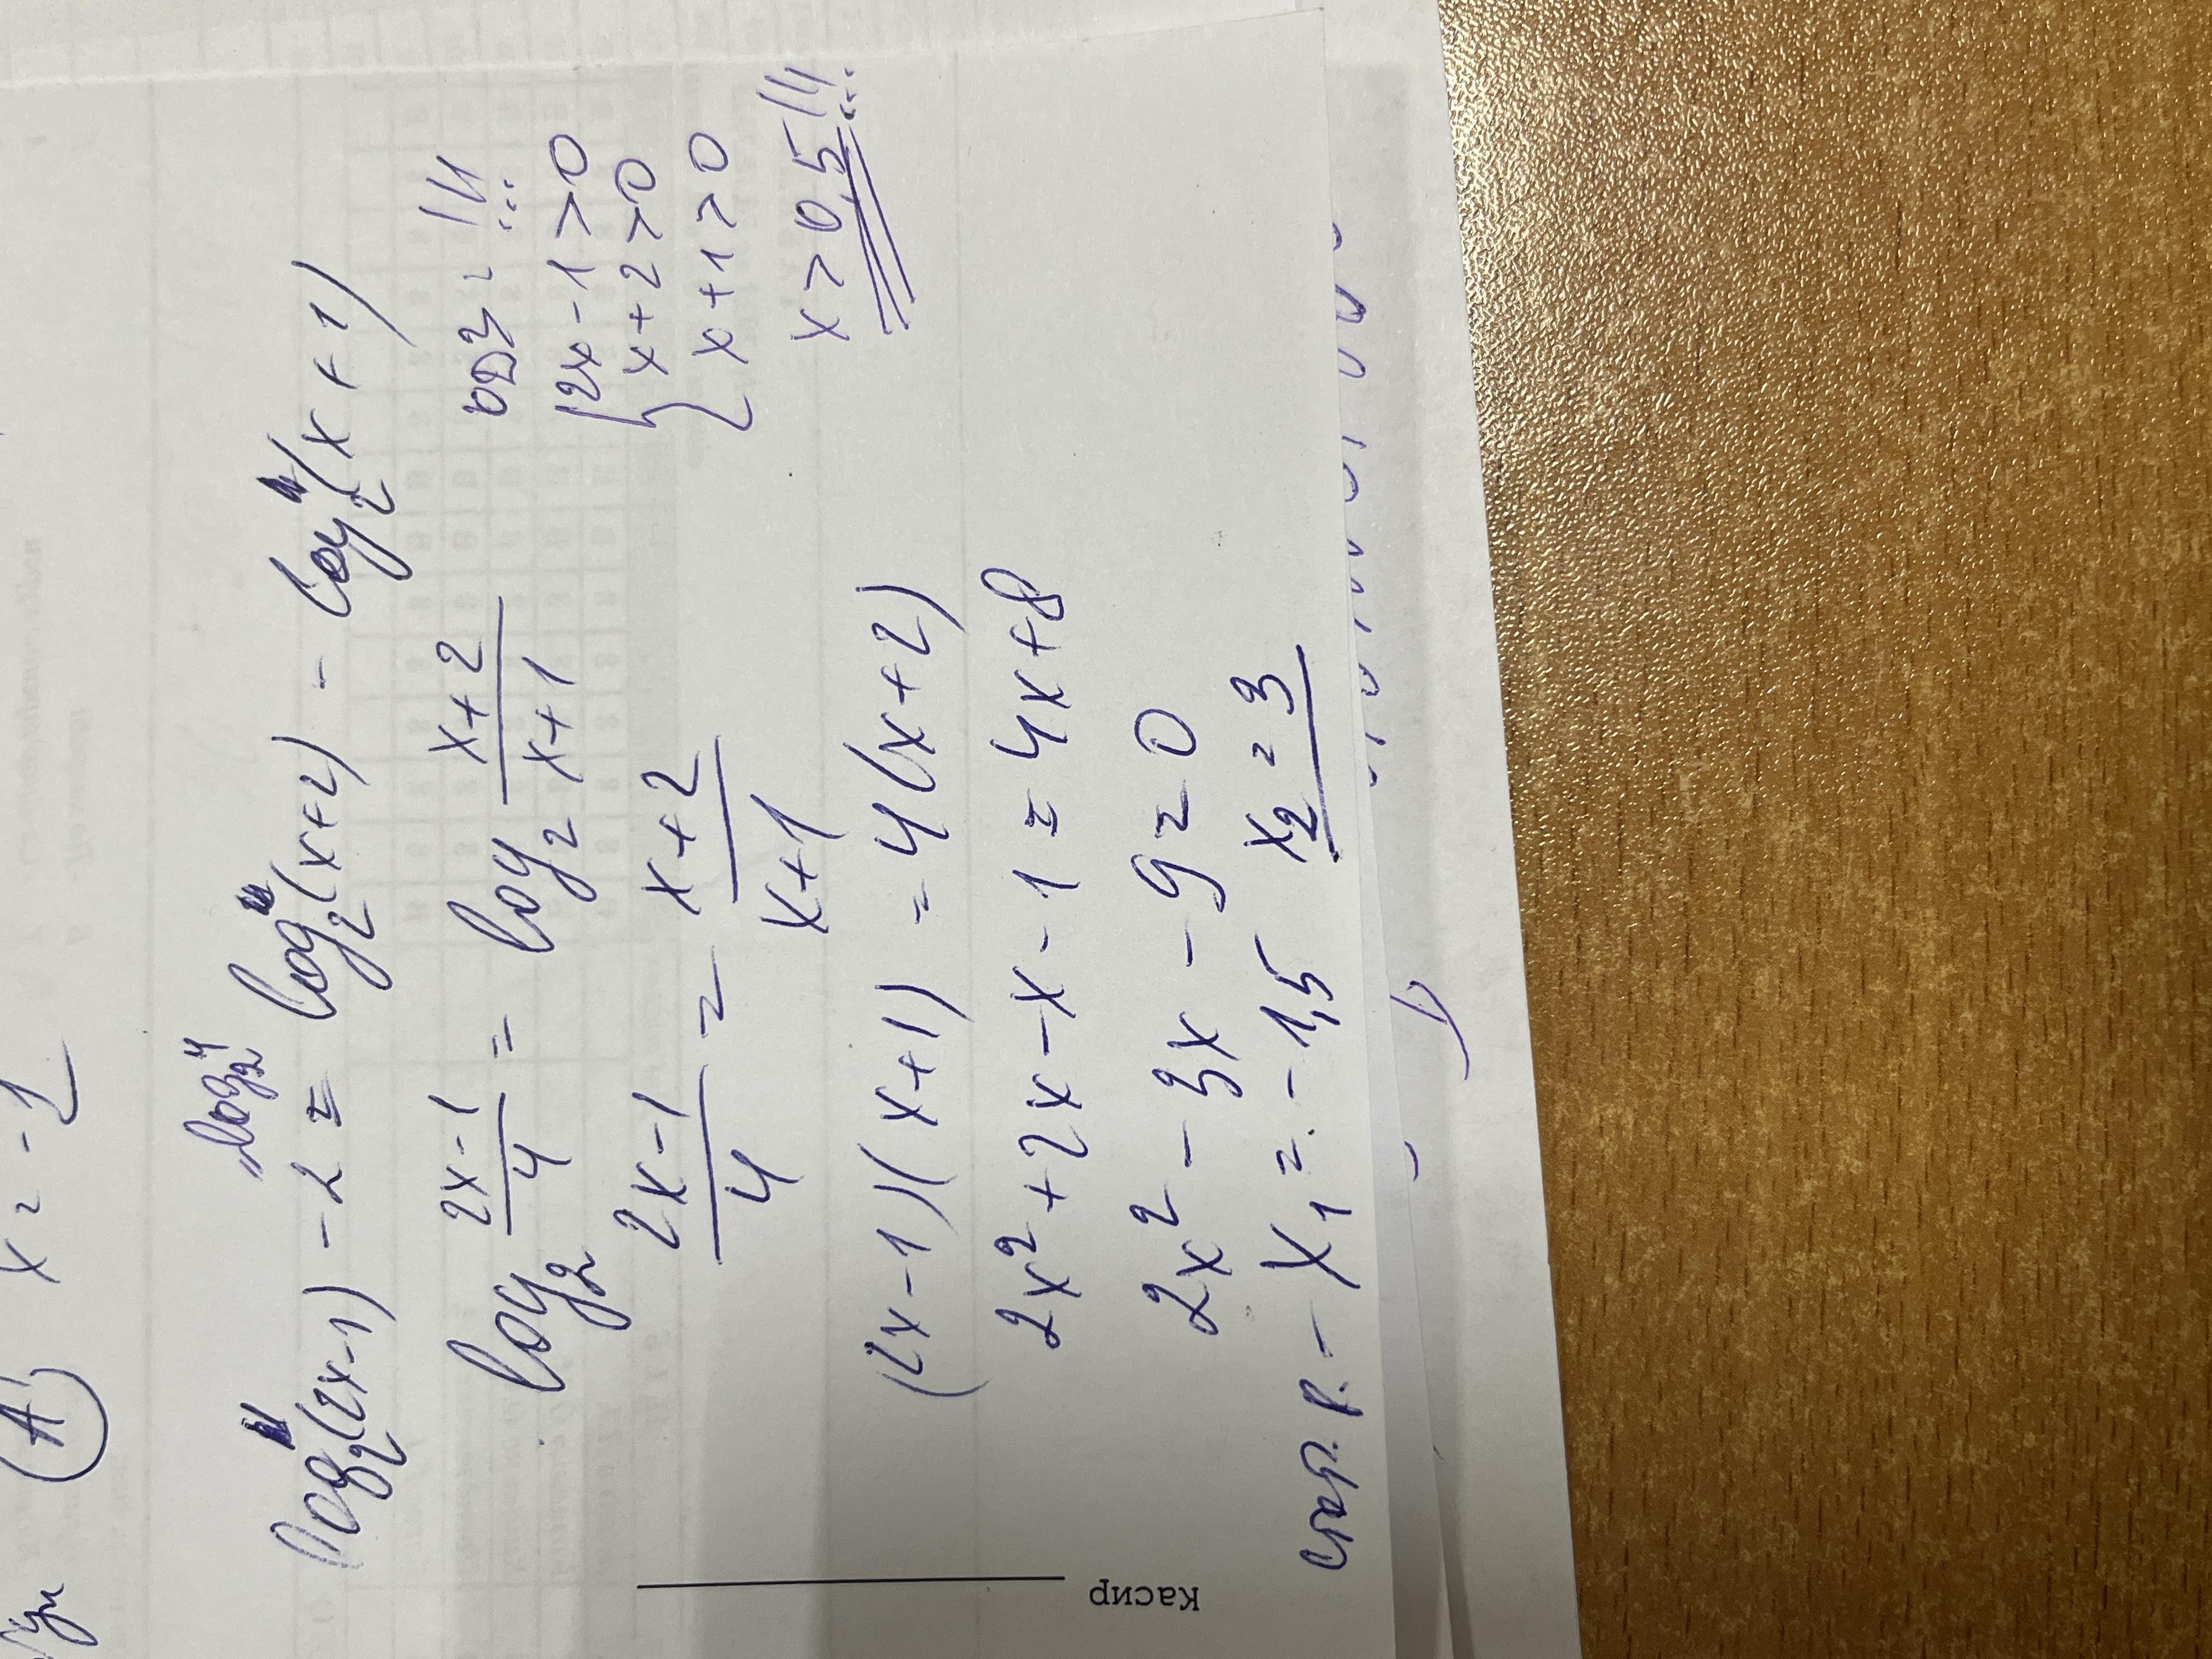 A x = -1
"log₂4"
log₂(2x-1) - 2 = log₂(x+2) - log₂(x+1)
log₂ (2x-1)/4 = log₂ (x+2)/(x+1)
(2x-1)/4 = (x+2)/(x+1)
(2x-1)(x+1) = 4(x+2)
2x² + 2x - x - 1 = 4x + 8
2x² - 3x - 9 = 0
x₁ = -1,5 x₂ = 3
ОДЗ - !!!
2x - 1 > 0
x + 2 > 0
x + 1 > 0
x > 0,5!!!
Касир